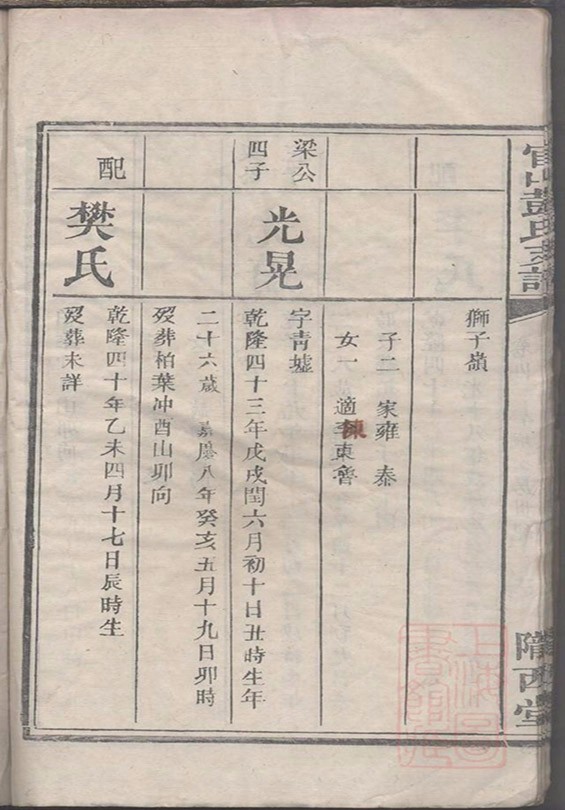 彭氏支譜
隴西堂
獅子嶺
子二 家雍 泰
女一 適陳東魯
梁公
四子
光晃
字青墟
乾隆四十三年戊戌閏六月初十日丑時生年
二十六歲 嘉慶八年癸亥五月十九日卯時
歿葬柏葉冲酉山卯向
配
樊氏
乾隆四十年乙未四月十七日辰時生
歿葬未詳